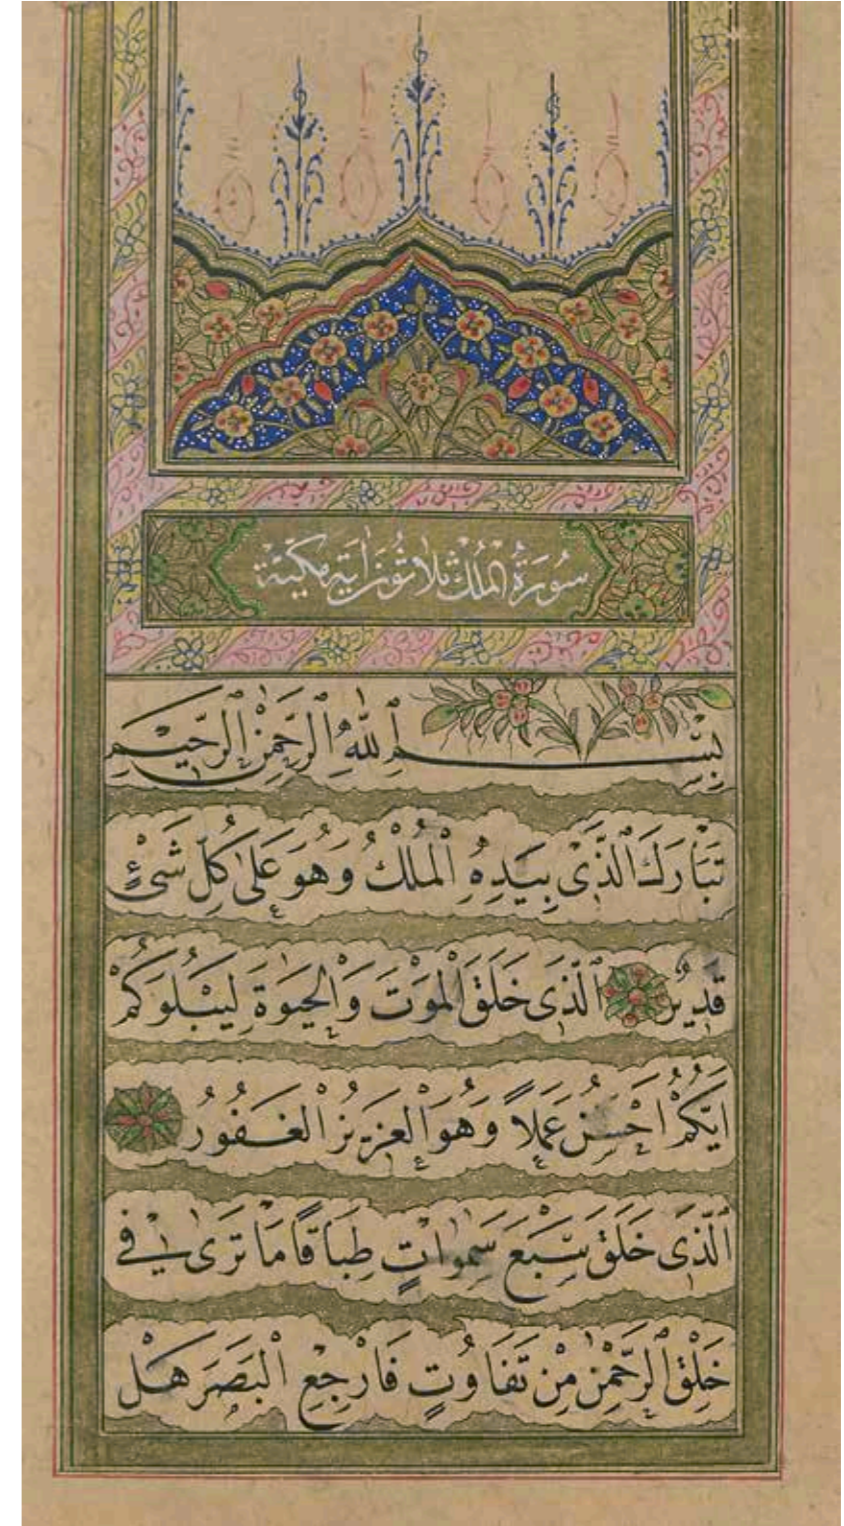 سُورَةُ الْمُلْكِ ثَلَاثُونَ اٰيَة مَكِّيَّة
بِسْـــمِ اللّٰهِ الرَّحْمٰنِ الرَّحِيـمِ
تَبَارَكَ الَّذٖى بِيَدِهِ الْمُلْكُ وَهُوَ عَلٰى كُلِّ شَىْءٍ
قَدٖيرٌ اَلَّذٖى خَلَقَ الْمَوْتَ وَالْحَيٰوةَ لِيَبْلُوَكُمْ
اَيُّكُمْ اَحْسَنُ عَمَلًا وَهُوَ الْعَزٖيزُ الْغَفُورُ
اَلَّذٖى خَلَقَ سَبْعَ سَمٰوَاتٍ طِبَاقًا مَا تَرٰى فٖى
خَلْقِ الرَّحْمٰنِ مِنْ تَفَاوُتٍ فَارْجِعِ الْبَصَرَ هَلْ